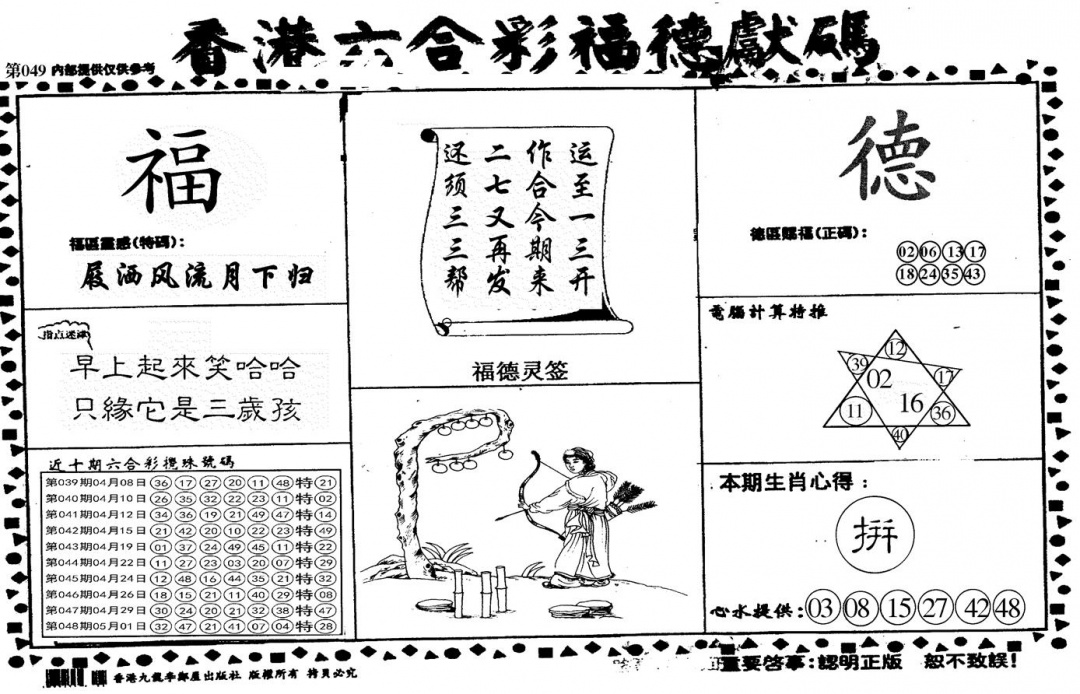 香港六合彩福德獻碼
第049 内部提供仅供参考
福
福區靈感(特碼):
屐洒风流月下归
指点迷津
早上起來笑哈哈
只緣它是三歲孩
近十期六合彩攪珠號碼
第039期04月08日 36 17 27 20 11 48 特 21
第040期04月10日 26 35 32 22 23 11 特 02
第041期04月12日 34 36 19 21 49 47 特 14
第042期04月15日 21 42 20 10 22 23 特 49
第043期04月19日 01 37 24 49 45 11 特 22
第044期04月22日 11 27 23 03 20 07 特 29
第045期04月24日 12 48 16 44 35 21 特 32
第046期04月26日 18 15 21 11 40 29 特 08
第047期04月29日 30 24 20 21 32 38 特 47
第048期05月01日 32 47 21 41 07 04 特 28
运至一三开
作合今期来
二七又再发
还须三三帮
福德灵签
德
德區賜福(正碼):
02 06 13 17
18 24 35 43
電腦計算特推
12
39 02 17
11 16 36
40
本期生肖心得:
拼
心水提供:03 08 15 27 42 48
香港九龍李鄭屋出版社 版權所有 拷貝必究
重要啓事:認明正版 恕不致誤!